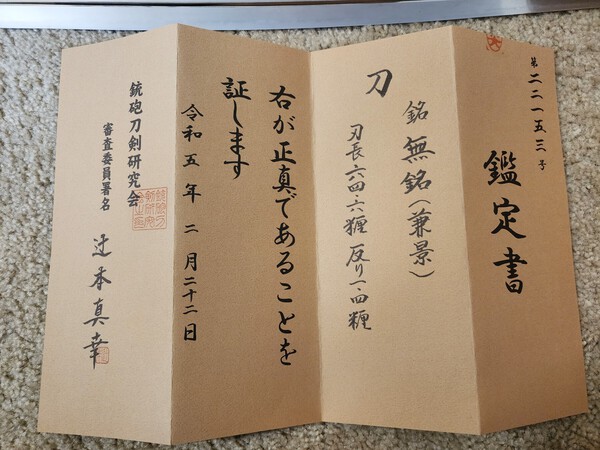 第二二一五三号
鑑定書
刀 銘 無銘(兼景)
刃長六四・六糎 反り一・四糎
右が正真であることを
証します
令和五年二月二十二日
銃砲刀剣研究会
審査委員署名 辻本真幸